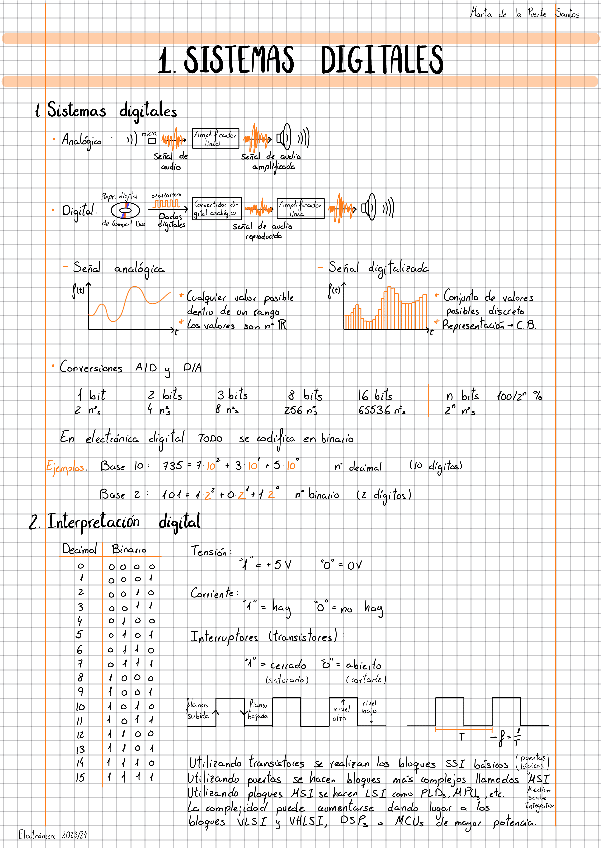 Marta de la Puente Santos
1. SISTEMAS DIGITALES
1. Sistemas digitales
· Analógico:
micro
Amplificador lineal
Señal de audio
Señal de audio amplificada
· Digital
Repr. digital de compact disc
Datos digitales
Convertidor digital analógico
Amplificador lineal
Señal de audio reproducida
- Señal analógica
- Señal digitalizada
f(t)
t
* Cualquier valor posible
dentro de un rango
* Los valores son nº ℝ
f(t)
t
* Conjunto de valores
posibles discreto
* Representación → C.B.
· Conversiones A/D y D/A
1 bit 2 bits 3 bits 8 bits 16 bits n bits 100/2ⁿ %
2 nºs 4 nºs 8 nºs 256 nºs 65536 nºs 2ⁿ nºs
En electrónica digital TODO se codifica en binario
Ejemplos: Base 10: 735 = 7·10² + 3·10¹ + 5·10⁰ nº decimal (10 dígitos)
Base 2: 101 = 1·2² + 0·2¹ + 1·2⁰ nº binario (2 dígitos)
2. Interpretación digital
Decimal Binario
0 0 0 0 0
1 0 0 0 1
2 0 0 1 0
3 0 0 1 1
4 0 1 0 0
5 0 1 0 1
6 0 1 1 0
7 0 1 1 1
8 1 0 0 0
9 1 0 0 1
10 1 0 1 0
11 1 0 1 1
12 1 1 0 0
13 1 1 0 1
14 1 1 1 0
15 1 1 1 1
Tensión:
"1" = +5V "0" = 0V
Corriente:
"1" = hay "0" = no hay
Interruptores (transistores):
"1" = cerrado "0" = abierto
(saturado) (cortado)
flanco subida
flanco bajada
nivel alto
nivel bajo
T
f = 1/T
Utilizando transistores se realizan los bloques SSI básicos (puertas lógicas)
Utilizando puertas se hacen bloques más complejos llamados MSI
Medium scale integration
Utilizando bloques MSI se hacen LSI como PLDs, MPUs, etc.
La complejidad puede aumentarse dando lugar a los
bloques VLSI y VHLSI, DSPs o MCUs de mayor potencia.
Electrónica 2023/24